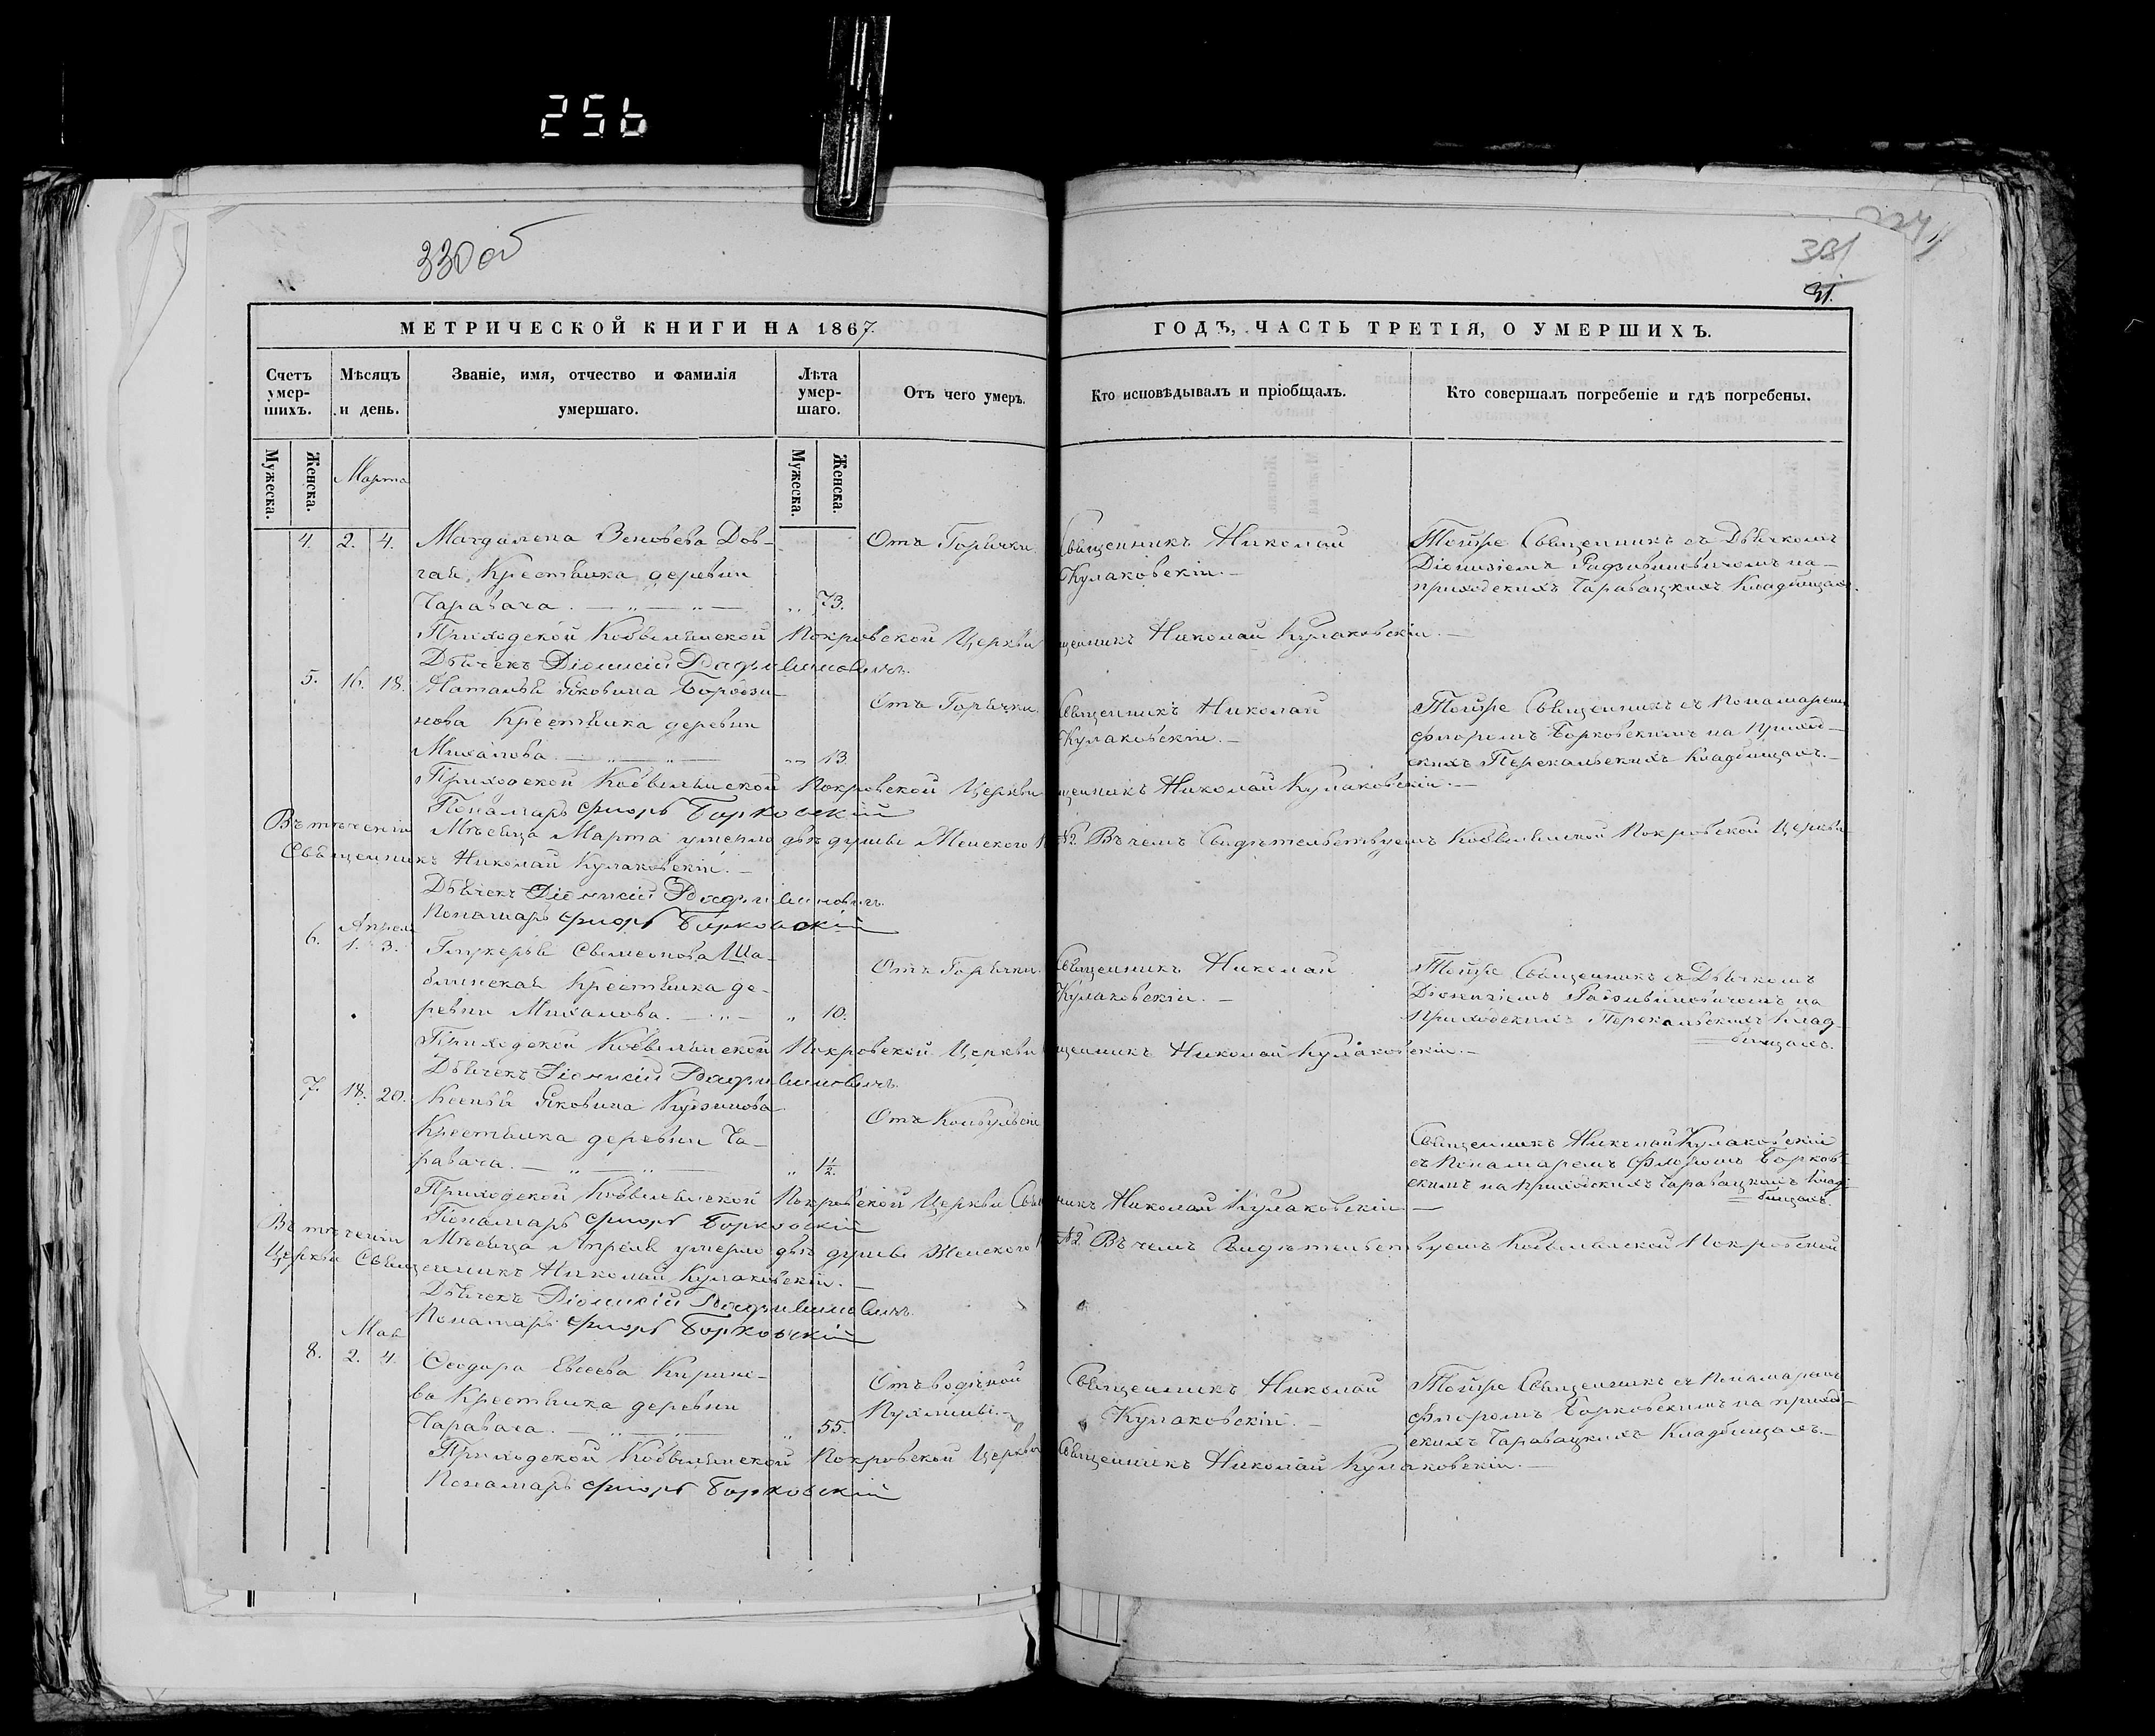 256
330 об
331
31.
МЕТРИЧЕСКОЙ КНИГИ НА 1867.
ГОДЪ, ЧАСТЬ ТРЕТІЯ, О УМЕРШИХЪ.
Счетъ умер-шихъ.
Мѣсяцъ и день.
Званіе, имя, отчество и фамилія умершаго.
Лѣта умер-шаго.
Отъ чего умеръ.
Кто исповѣдывалъ и пріобщалъ.
Кто совершалъ погребеніе и гдѣ погребены.
Мужеска. Женска. Марта Мужеска. Женска.
4. 2. 4. Магдалена Зеновева Дов-
гая, Крестьянка деревни
Чаравача. 73.
Отъ Горячки.
Священникъ Николай
Кулаковскій.
Тойже Священникъ съ Дьячкомъ
Діонизіемъ на
приходскихъ Чаравацкихъ Кладбищахъ.
Приходской Покровской Церкви Священникъ Николай Кулаковскій.
Дьячекъ Діонисій
5. 16. 18. Наталья Яковина
нова Крестьянка деревни
Михалова 13
Отъ Горячки.
Священникъ Николай
Кулаковскій.
Тойже Священникъ съ Понамаремъ
Флоромъ Борковскимъ на приход-
скихъ Перекальскихъ Кладбищахъ.
Приходской Покровской Церкви Священникъ Николай Кулаковскій.
Понамарь Флоръ Борковскій
Въ теченіи Мѣсяца Марта умерло двѣ душы Женского №2. Въ чемъ Свидѣтельствуемъ Покровской Церкви
Священникъ Николай Кулаковскій.
Дьячекъ Діонисій
Понамарь Флоръ Борковскій
Апреля
6. 1. 3. Глукерья Свимеонова Ша-
блинская Крестьянка де-
ревни Михалова. 10.
Отъ Горячки.
Священникъ Николай
Кулаковскій.
Тойже Священникъ съ Дьячкомъ
Діонизіемъ на
приходскихъ Перекальскихъ Клад-
бищахъ.
Приходской Покровской Церкви Священникъ Николай Кулаковскій.
Дьячекъ Діонисій
7. 18. 20. Ксенья Яковина Кузинова
Крестьянка деревни Ча-
равача. 1½
Отъ Конвульсіи
Священникъ Николай Кулаковскій
съ Понамаремъ Флоромъ Борков-
скимъ на приходскихъ Чаравацкихъ Клад-
бищахъ.
Приходской Покровской Церкви Священникъ Николай Кулаковскій
Понамарь Флоръ Борковскій
Въ теченіи Мѣсяца Апреля умерло двѣ душы Женского №2. Въ чемъ Свидѣтельствуемъ Покровской
Церкви Священникъ Николай Кулаковскій.
Дьячекъ Діонисій
Понамарь Флоръ Борковскій
Мая
8. 2. 4. Феодора Евсеева Кирило-
ва Крестьянка деревни
Чаравача. 55.
Отъ водяной
Пухлины.
Священникъ Николай
Кулаковскій.
Тойже Священникъ съ Понамаремъ
Флоромъ Борковскимъ на приход-
скихъ Чаравацкихъ Кладбищахъ.
Приходской Покровской Церкви Священникъ Николай Кулаковскій.
Понамарь Флоръ Борковскій